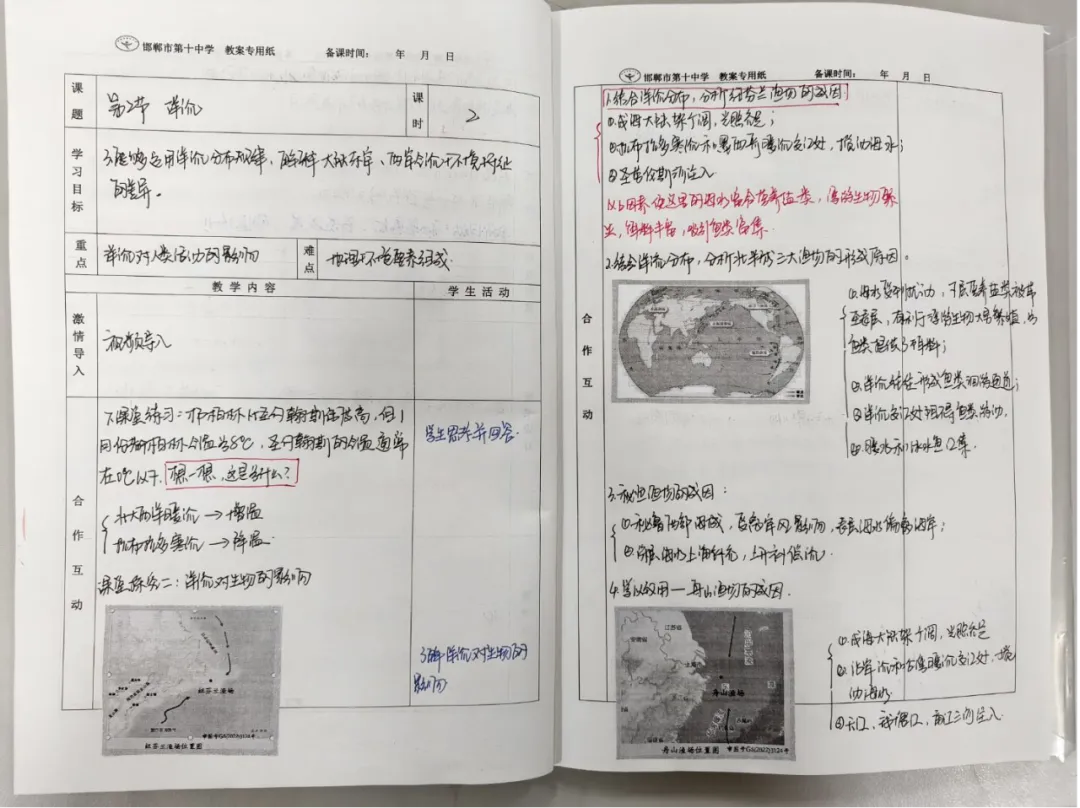 邯郸市第十中学 教案专用纸 备课时间： 年 月 日
课题
第2节 洋流
课时
2
学习目标
了能够运用洋流分布规律，解释大陆东岸、西岸
的差异。
重点
洋流对人类活动的影响
难点
教学内容
学生活动
激情导入
视频导入
合作互动
1.课堂练习：
月份 气温为8℃，
在0℃以下. 想一想，这是为什么？
北大西洋暖流→增温
拉布拉多寒流→降温
学生思考并回答.
课堂探究二：洋流对生物的影响
了解洋流对生物的
影响
纽芬兰渔场
审图号GS(2022)3124号
纽芬兰渔场位置图
邯郸市第十中学 教案专用纸 备课时间： 年 月 日
合作互动
1.结合洋流分布，分析纽芬兰渔场的成因
①浅海大陆架广阔，光照充足；
②拉布拉多寒流和墨西哥暖流交汇处，搅动海水；
③圣劳伦斯河注入
以上因素使这里的海水富含营养盐类，浮游生物繁
饵料丰富，吸引鱼类富集.
2.结合洋流分布，分析世界 三大渔场的形成原因。
①海水受到扰动，下层营养盐类被带
至表层，有利于浮游生物大量繁殖，为
鱼类提供了饵料；
②洋流往往形成鱼类洄游通道；
③洋流交汇处阻碍鱼类游动.
④暖水和冷水鱼汇集.
3.秘鲁渔场的成因：
①秘鲁西部海域，受离岸风影响，表层海水偏离海岸；
②深层海水上涌补充，上升补偿流.
4.学以致用——舟山渔场的成因.
江苏省
安徽省
上海市
舟山渔场
福建省
审图号GS(2022)3124号
舟山渔场位置图
①浅海大陆架广阔，光照充足
②沿岸流和台湾暖流交汇处，搅
动海水
③长江、钱塘江、 江三河注入.